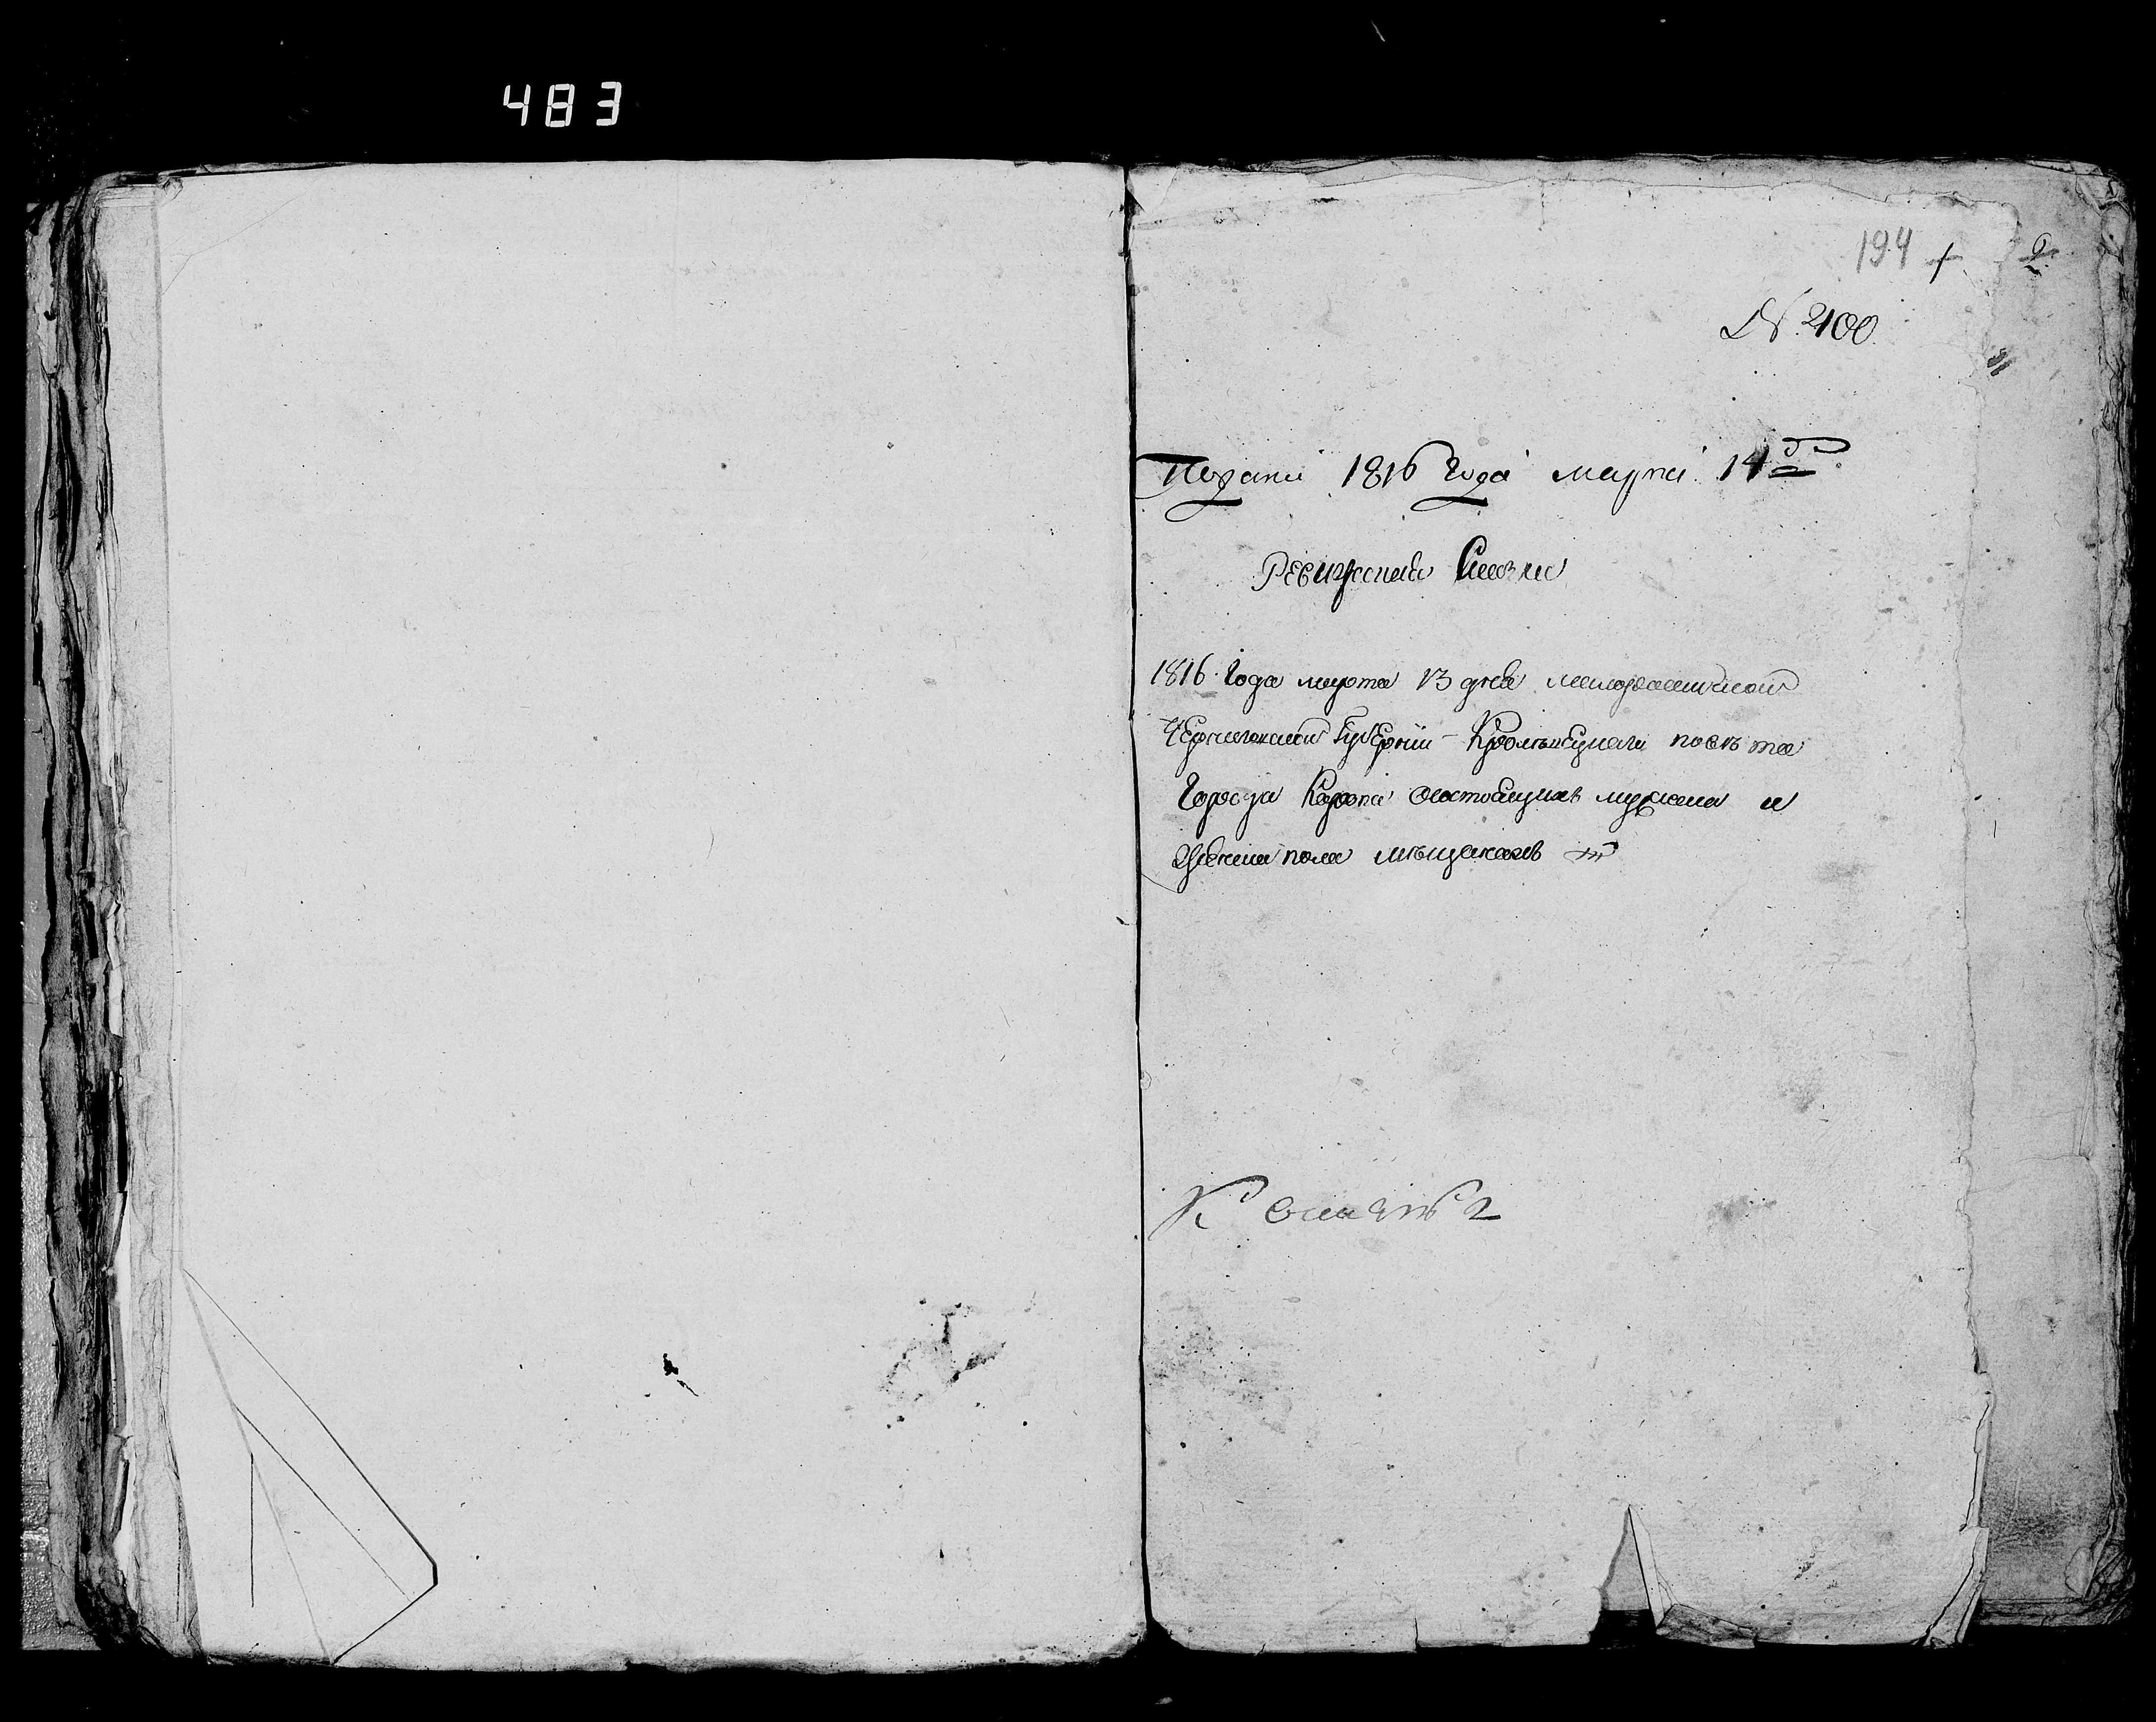 483
194
№ 400
Подана 1816 Года марта 14 го
Ревизская Сказка
1816 Года марта 13 дня малороссийской
Черниговской Губернии Кролевецкаго повѣта
Города Коропа состоящихъ мужска и
женска пола мѣщанахъ